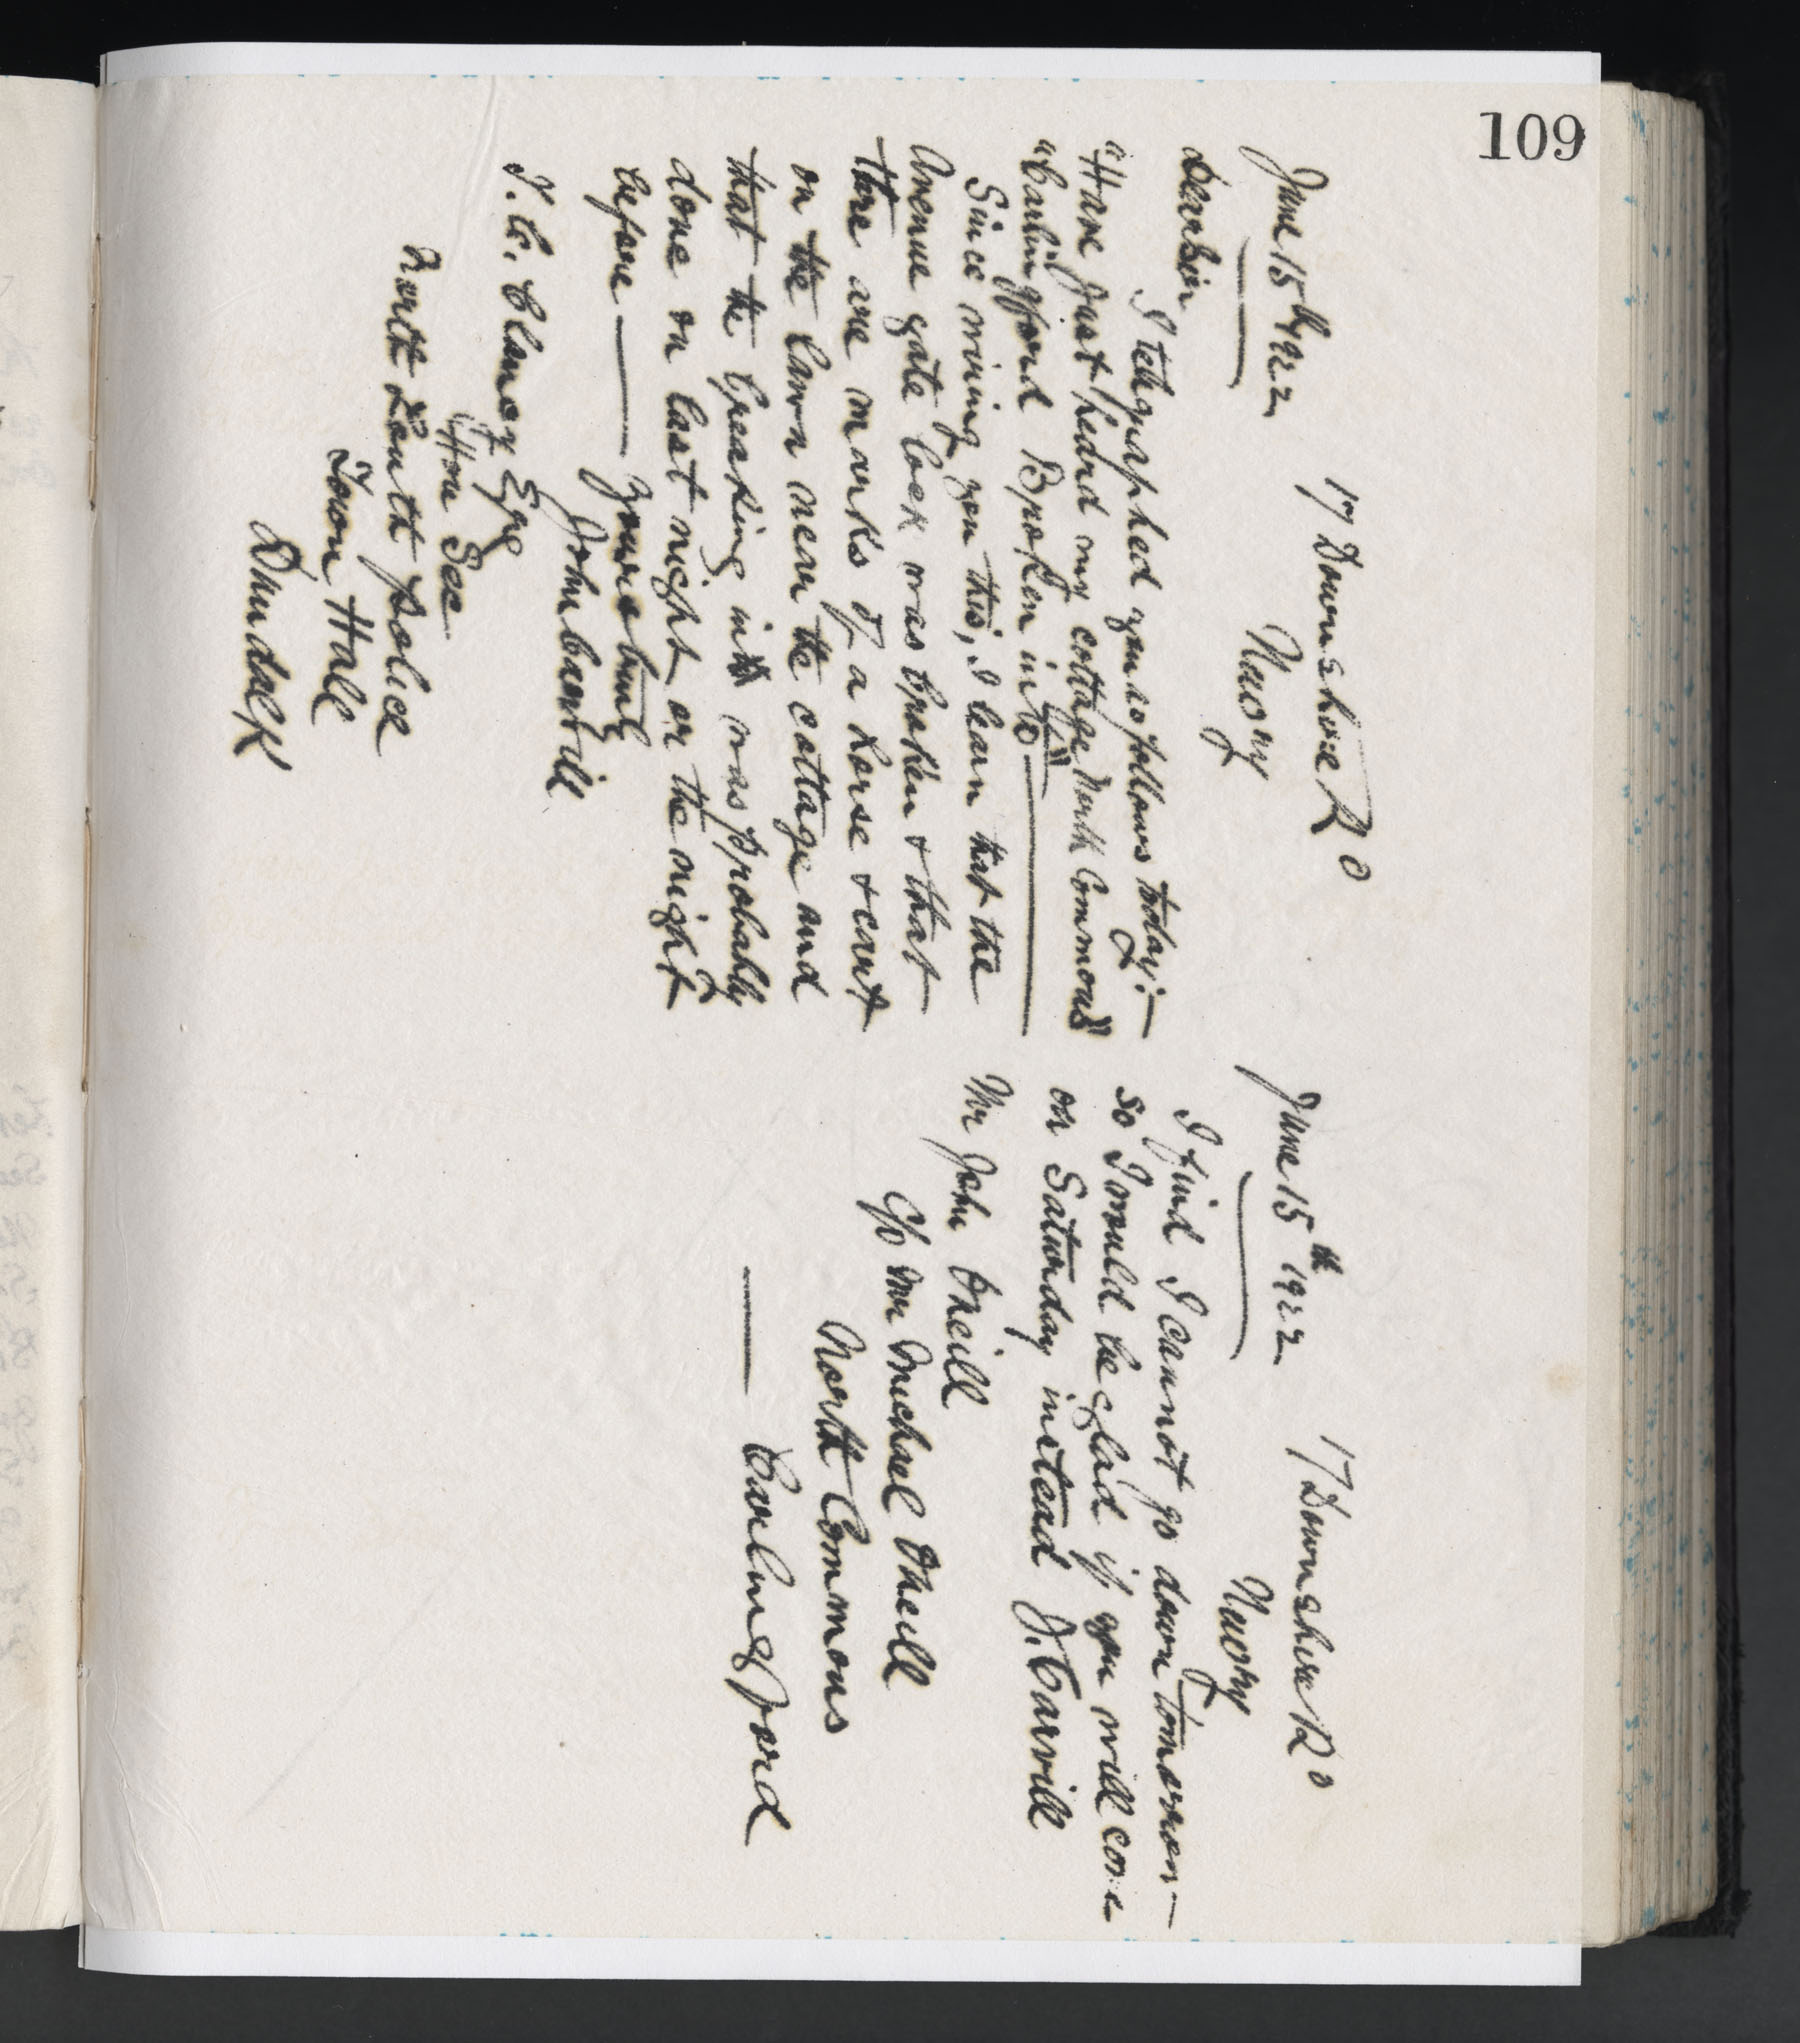 109
17 Downshire Rd
June 15th 1922
Newry
Dear Sir
I telegraphed you as follows today:—
"Have just heard my cottage North Commons"
"Carlingford Broken into"—
Since wiring you this, I learn that the
Avenue gate lock was broken & that
there are marks of a horse & cart
on the lawn near the cottage and
that the breaking in was probably
done on last night or the night
before — Yours truly
John Carvill
T. C. Clancy Esq
Hon Sec
North Louth Police
Town Hall
Dundalk
17 Downshire Rd
June 15th 1922
Newry
I find I cannot go down tomorrow—
so I would be glad if you will come
on Saturday instead J. Carvill
Mr John Oneill
C/o Mr Michael Oneill
North Commons
Carlingford